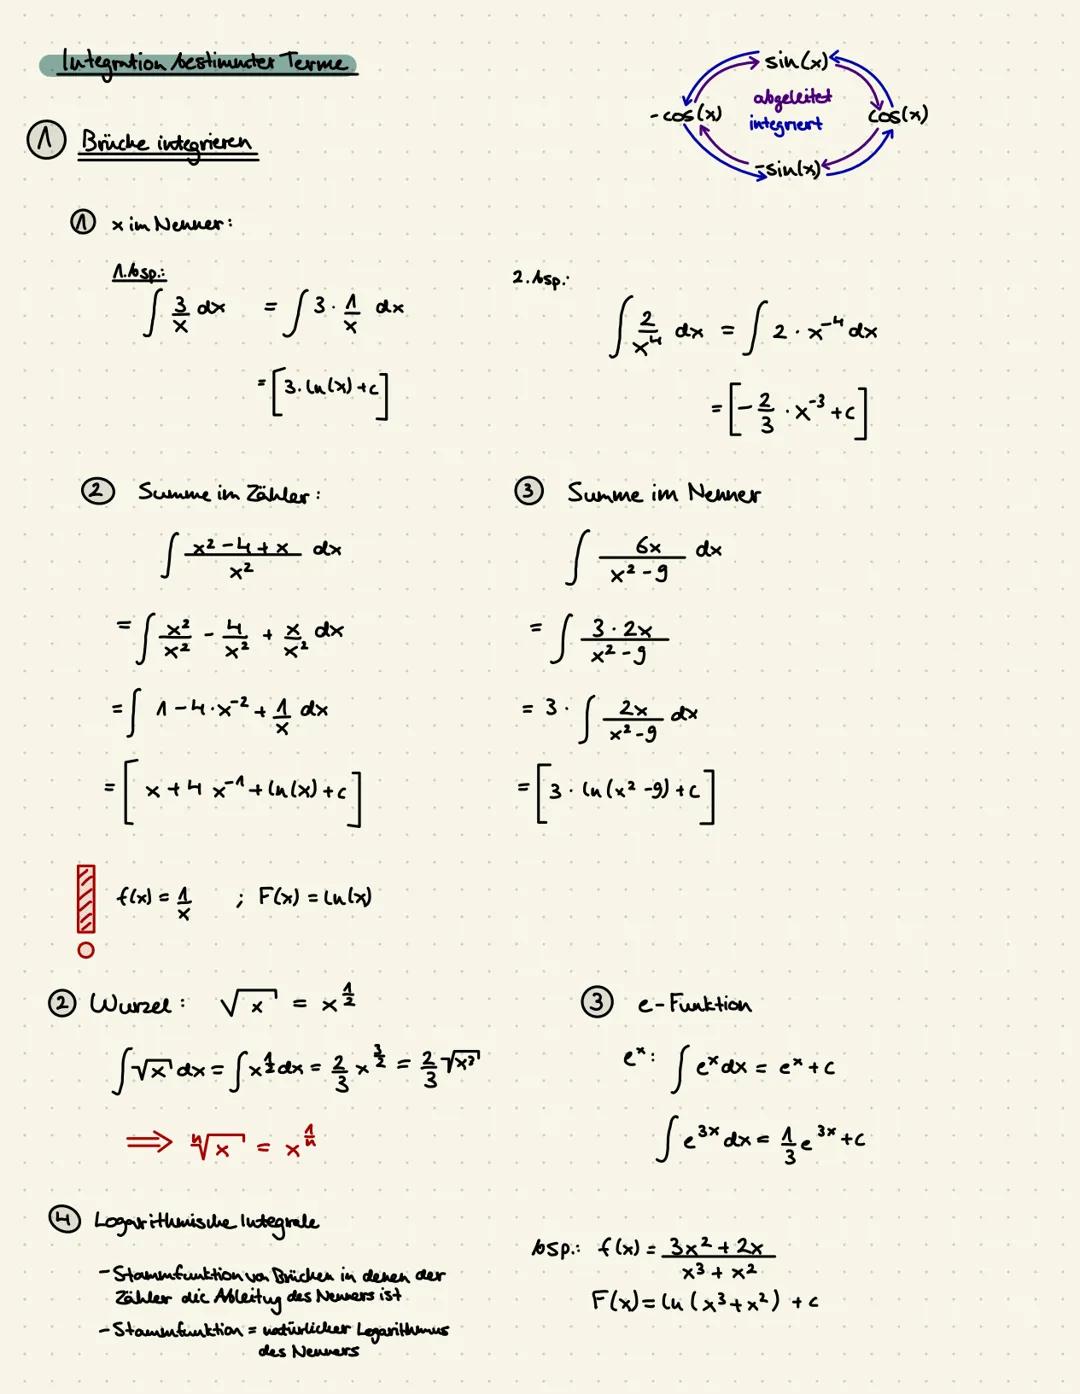 Integration bestimmter Terme
sin(x)
abgeleitet
-cos(x) integriert cos(x)
-sin(x)
1 Brüche integrieren
1 x im Nenner:
1. bsp.:
∫ 3/x dx = ∫ 3 · 1/x dx
= [3 · ln(x) + c]
2. bsp.:
∫ 2/x⁴ dx = ∫ 2 · x⁻⁴ dx
= [-2/3 · x⁻³ + c]
2 Summe im Zähler:
∫ (x² - 4 + x)/x² dx
= ∫ x²/x² - 4/x² + x/x² dx
= ∫ 1 - 4 · x⁻² + 1/x dx
= [x + 4 x⁻¹ + ln(x) + c]
3 Summe im Nenner
∫ 6x/(x² - 9) dx
= ∫ (3 · 2x)/(x² - 9)
= 3 · ∫ 2x/(x² - 9) dx
= [3 · ln(x² - 9) + c]
! f(x) = 1/x ; F(x) = ln(x)
2 Wurzel: √x = x^(1/2)
∫ √x dx = ∫ x^(1/2) dx = 2/3 x^(3/2) = 2/3 √x³
⟹ ⁿ√x = x^(1/n)
3 e-Funktion
eˣ: ∫ eˣ dx = eˣ + c
∫ e³ˣ dx = 1/3 e³ˣ + c
4 Logarithmische Integrale
- Stammfunktion von Brüchen in denen der
Zähler die Ableitug des Nenners ist
- Stammfunktion = natürlicher Logarithmus
des Nenners
bsp.: f(x) = (3x² + 2x)/(x³ + x²)
F(x) = ln(x³ + x²) + c